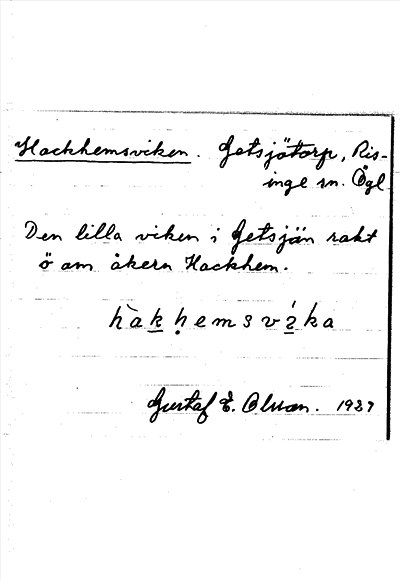 Hackhemsviken. Getsjötorp, Ris-
inge sn. Ögl
Den lilla viken i Getsjön rakt
ö om åkern Hackhem.
Gustaf E. 1927